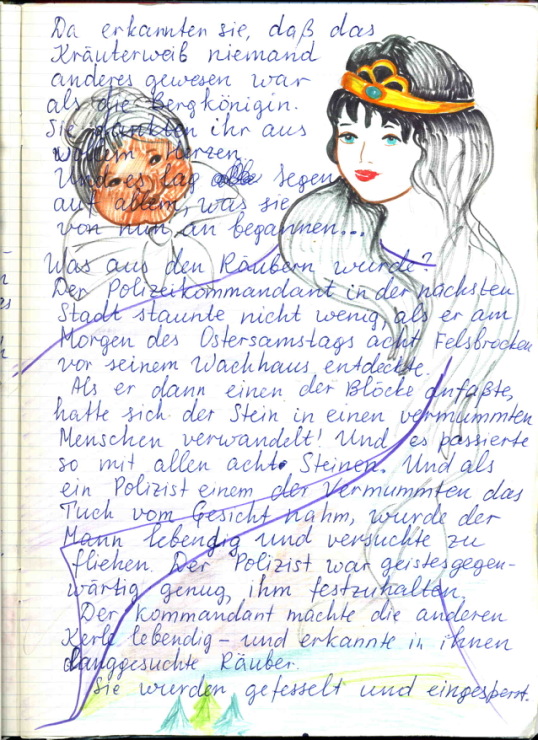 Da erkannten sie, daß das
Kräuterweib niemand
anderes gewesen war
als die Bergkönigin.
Sie dankten ihr aus
vollem Herzen.
Und es lag Segen
auf allem, was sie
von nun an begannen...
Was aus den Räubern wurde?
Der Polizeikommandant in der nächsten
Stadt staunte nicht wenig, als er am
Morgen des Ostersamstags acht Felsbrocken
vor seinem Wachhaus entdeckte.
Als er dann einen der Blöcke anfaßte,
hatte sich der Stein in einen vermummten
Menschen verwandelt! Und es passierte
so mit allen acht Steinen. Und als
ein Polizist einem der Vermummten das
Tuch vom Gesicht nahm, wurde der
Mann lebendig und versuchte zu
fliehen. Der Polizist war geistesgegen-
wärtig genug, ihm festzuhalten.
Der Kommandant machte die anderen
Kerle lebendig – und erkannte in ihnen
langgesuchte Räuber.
Sie wurden gefesselt und eingesperrt.